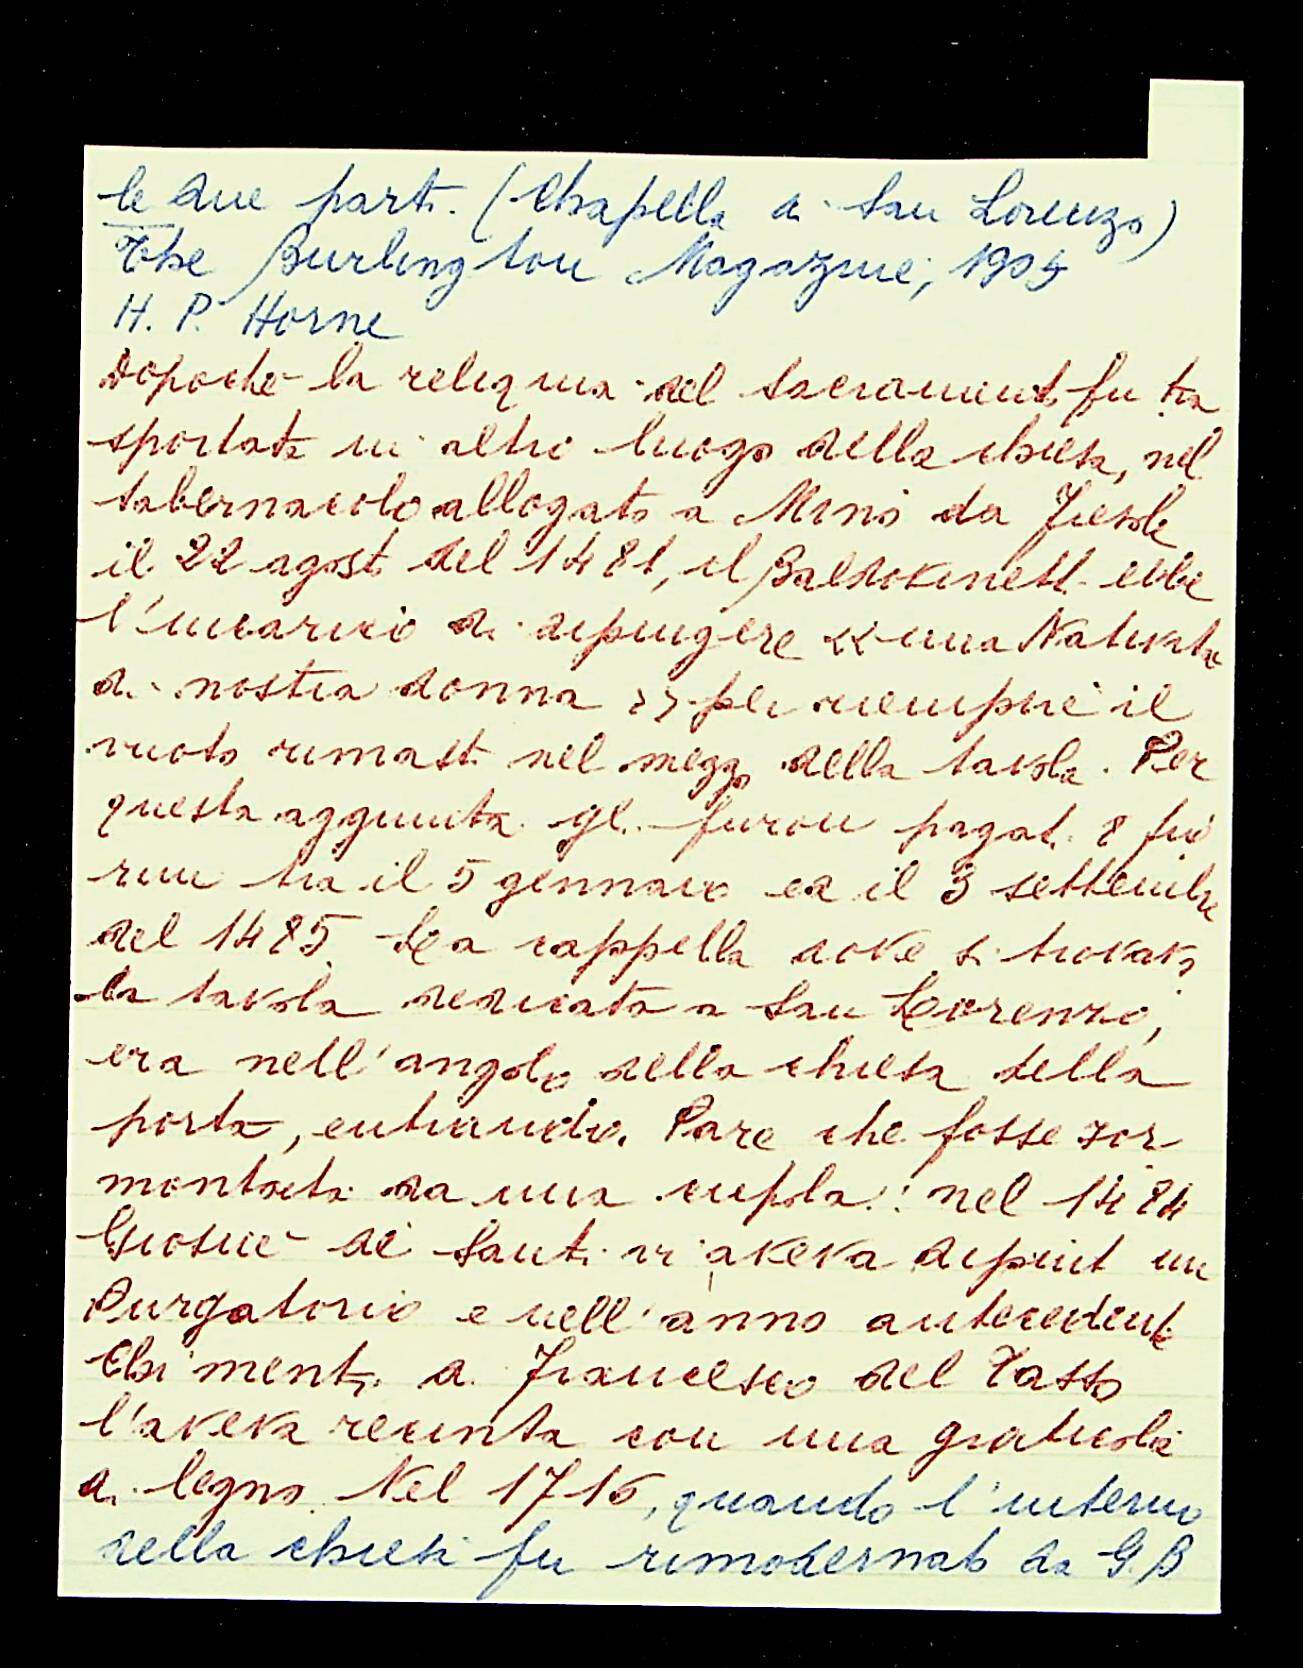 le due parti. (Chapella di San Lorenzo)
The Burlington Magazine, 1905
H. P. Horne
Dopoché la reliquia del Sacramento fu tra
sportata in altro luogo della chiesa, nel
tabernacolo allogato a Mino da Fiesole
il 22 agosto del 1481, il Baldovinetti ebbe
l'incarico di dipingere << una Natività
di nostra donna >> per riempire il
vuoto rimasto nel mezzo della tavola. Per
questa aggiunta gli furon pagati 8 fio
rini tra il 5 gennaio ed il 3 settembre
del 1485. La cappella dove si trovava
la tavola dedicata a San Lorenzo,
era nell'angolo della chiesa della
porta, entrando. Pare che fosse sor
montata da una cupola: nel 1484
Giosuè di Santi vi aveva dipinto un
Purgatorio e nell'anno antecedente
Chimenti di Francesco del Tasso
l'aveva recinta con una graticola
di legno. Nel 1716, quando l'interno
della chiesa fu rimodernato da G. B